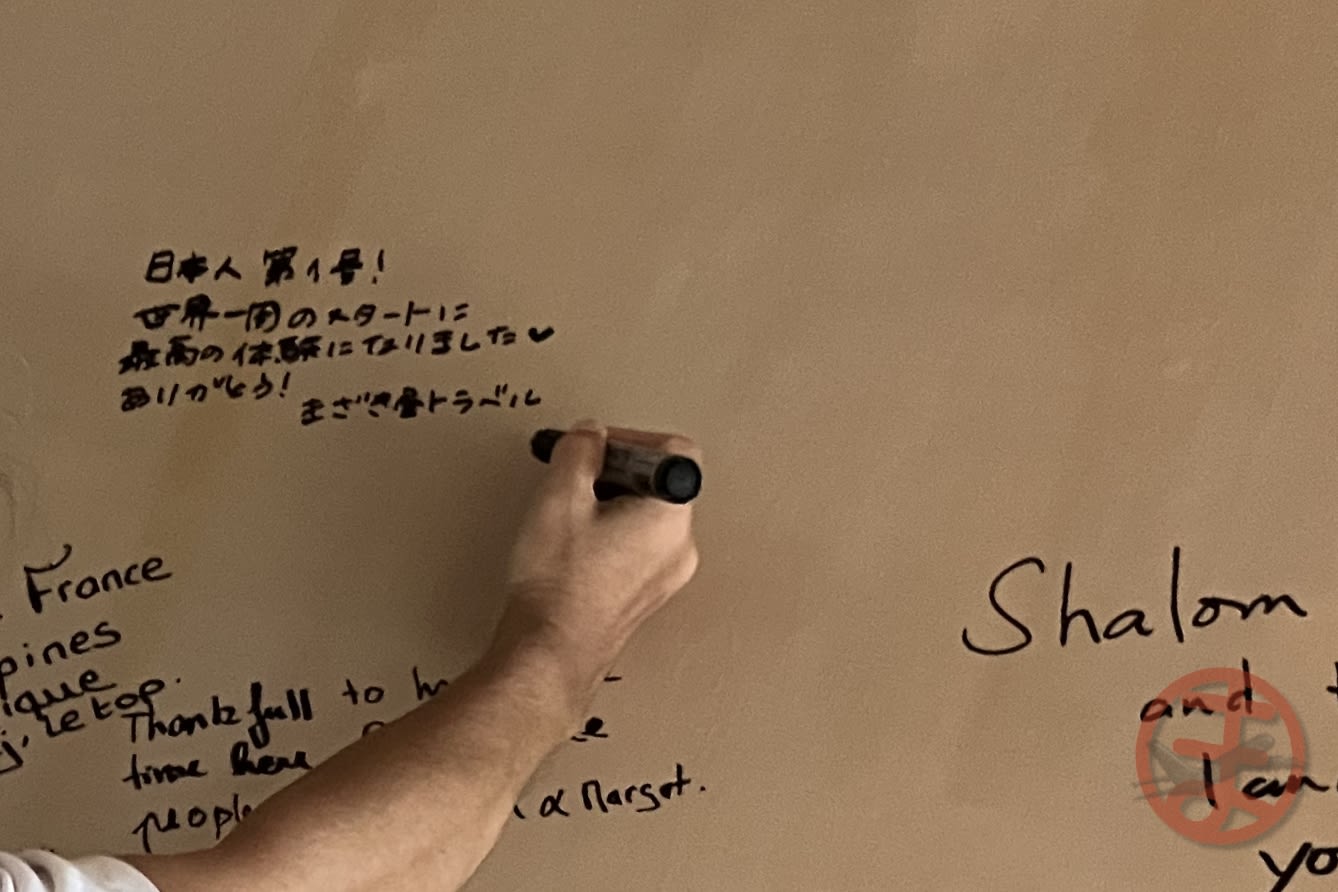 日本人 第1号!
世界一周のスタートに
最高の体験になりました♥
ありがとう!
まざき号トラベル
France
pines
ique
le top.
Thankfull to
time here
people
a Margot.
Shalom
and
I am
yo